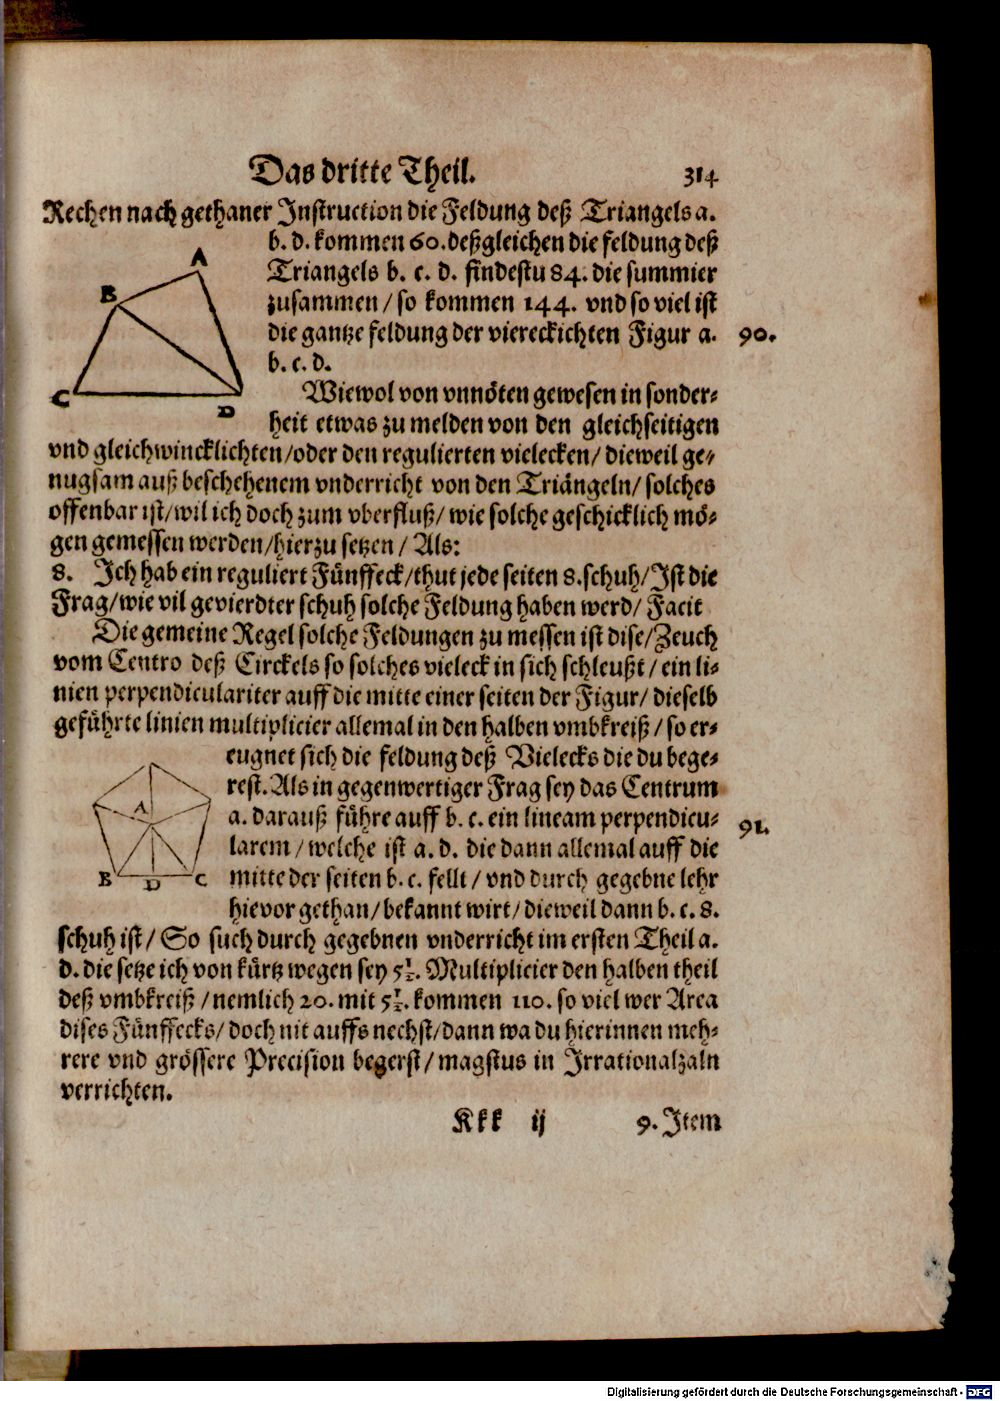 Das dritte Theil.
314
Rechen nach gethaner Instruction die Feldung deß Triangels a.
b. d. kommen 60. deßgleichen die feldung deß
Triangels b. c. d. findestu 84. die summier
zusammen / so kommen 144. vnd so viel ist
die gantze feldung der viereckichten Figur a.
90.
b. c. d.
A
B
C
D
Wiewol von vnnöten gewesen in sonder⸗
heit etwas zu melden von den gleichseitigen
vnd gleichwincklichten/oder den regulierten vielecken/ dieweil ge⸗
nugsam auß beschehenem vnderricht von den Triängeln/ solches
offenbar ist/wil ich doch zum vberfluß/ wie solche geschicklich mö⸗
gen gemessen werden/hierzu setzen / Als:
8. Ich hab ein reguliert Fünffeck/thut jede seiten 8.schuh/Ist die
Frag/wie vil gevierdter schuh solche Feldung haben werd/ Facit
Die gemeine Regel solche Feldungen zu messen ist dise/Zeuch
vom Centro deß Circkels so solches vieleck in sich schleußt / ein li⸗
nien perpendiculariter auff die mitte einer seiten der Figur/ dieselb
geführte linien multiplicier allemal in den halben vmbkreiß / so er⸗
eugnet sich die feldung deß Vielecks die du bege⸗
rest. Als in gegenwertiger Frag sey das Centrum
a. darauß führe auff b. c. ein lineam perpendicu⸗
91.
larem / welche ist a. d. die dann allemal auff die
mitte der seiten b. c. fellt / vnd durch gegebne lehr
hievor gethan/ bekannt wirt/ dieweil dann b. c. 8.
A
B
D
C
schuh ist / So such durch gegebnen vnderricht im ersten Theil a.
d. die setze ich von kürtz wegen sey 5½. Multiplicier den halben theil
deß vmbkreiß / nemlich 20. mit 5½. kommen 110. so viel wer Area
dises Fünffecks/ doch nit auffs nechst/dann wa du hierinnen meh⸗
rere vnd grössere Precision begerst / magstus in Irrationalzaln
verrichten.
Kkk ij
9. Item
Digitalisierung gefördert durch die Deutsche Forschungsgemeinschaft - DFG